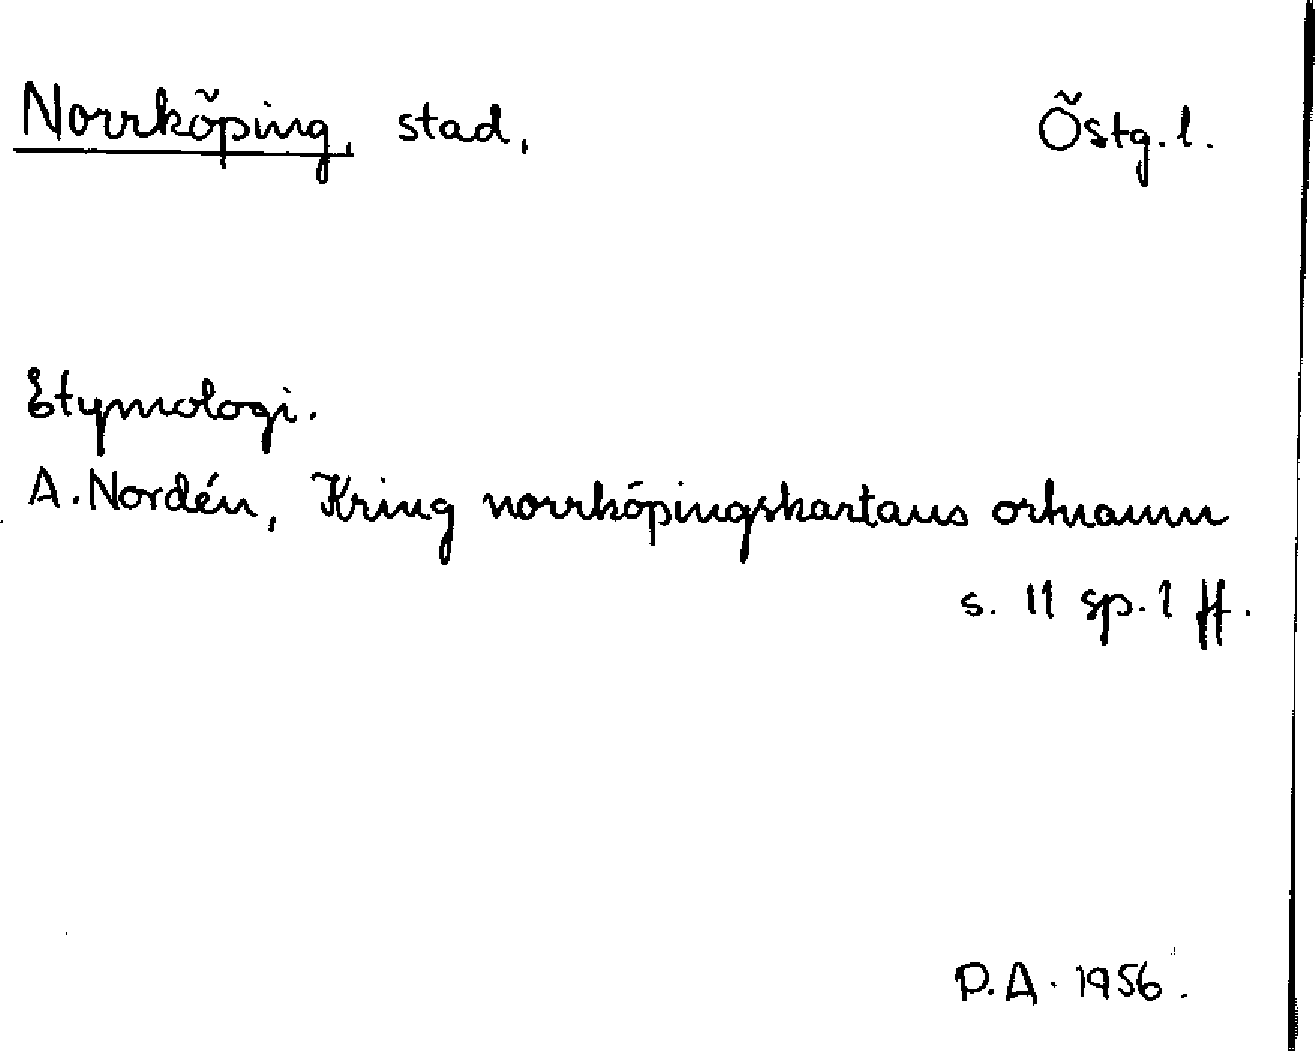 Norrköping, stad, Östg. l.
Etymologi.
A. Nordén, Kring norrköpingskartans ortnamn
s. 11 sp. 1 ff.
P.A. 1956.